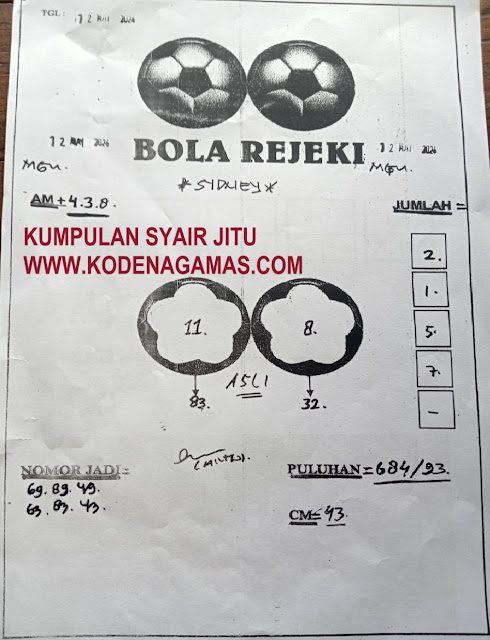 TGL : 12 MAI 2024
12 MAI 2024
12 MAI 2024
BOLA REJEKI
MGU.
MGU.
*SYDNEY*
AM + 4.3.8.
JUMLAH =
KUMPULAN SYAIR JITU
WWW.KODENAGAMAS.COM
2.
1.
5.
7.
-
11.
8.
ASLI
83.
32.
NOMOR JADI =
69. 89. 49.
63. 83. 43.
PULUHAN = 684/93.
CM = 43.